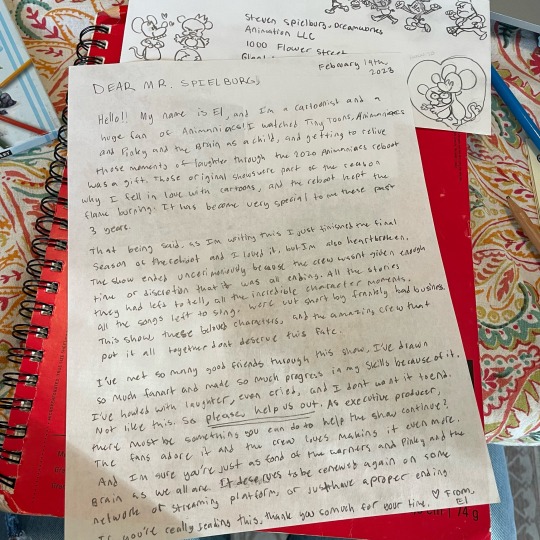 Steven Spielburg-Dreamworks
Animation LLC
1000 Flower Street
February 19th,
2023
DEAR MR. SPIELBURG,
Hello!! My name is El, and I'm a cartoonist and a
huge fan of Animaniacs! I watched Tiny Toons, Animaniacs
and Pinky and the Brain as a child, and getting to relive
those moments of laughter through the 2020 Animaniacs reboot
was a gift. Those original shows were part of the reason
why I fell in love with cartoons, and the reboot kept the
flame burning. It has become very special to me these past
3 years.
That being said, as I'm writing this I just finished the final
season of the reboot and I loved it, but I'm also heartbroken.
The show ended unceremoniously because the crew wasn't given enough
time or discretion that it was all ending. All the stories
they had left to tell, all the incredible character moments,
all the songs left to sing. were cut short by frankly bad business.
This show, these beloved characters, and the amazing crew that
put it all together dont deserve this fate.
I've met so many good friends through this show, I've drawn
so much fanart and made so much progress in my skills because of it.
I've howled with laughter, even cried, and I dont want it to end.
Not like this. So please, help us out. As executive producer,
there must be something you can do to help the show continue?
The fans adore it and the crew loves making it even more.
And I'm sure you're just as fond of the warners and Pinky and the
Brain as we all are. It deserves to be renewed again on some
network or streaming platform, or just have a proper ending
If you're really reading this, thank you so much for your time. ♡ From,
El
74 g